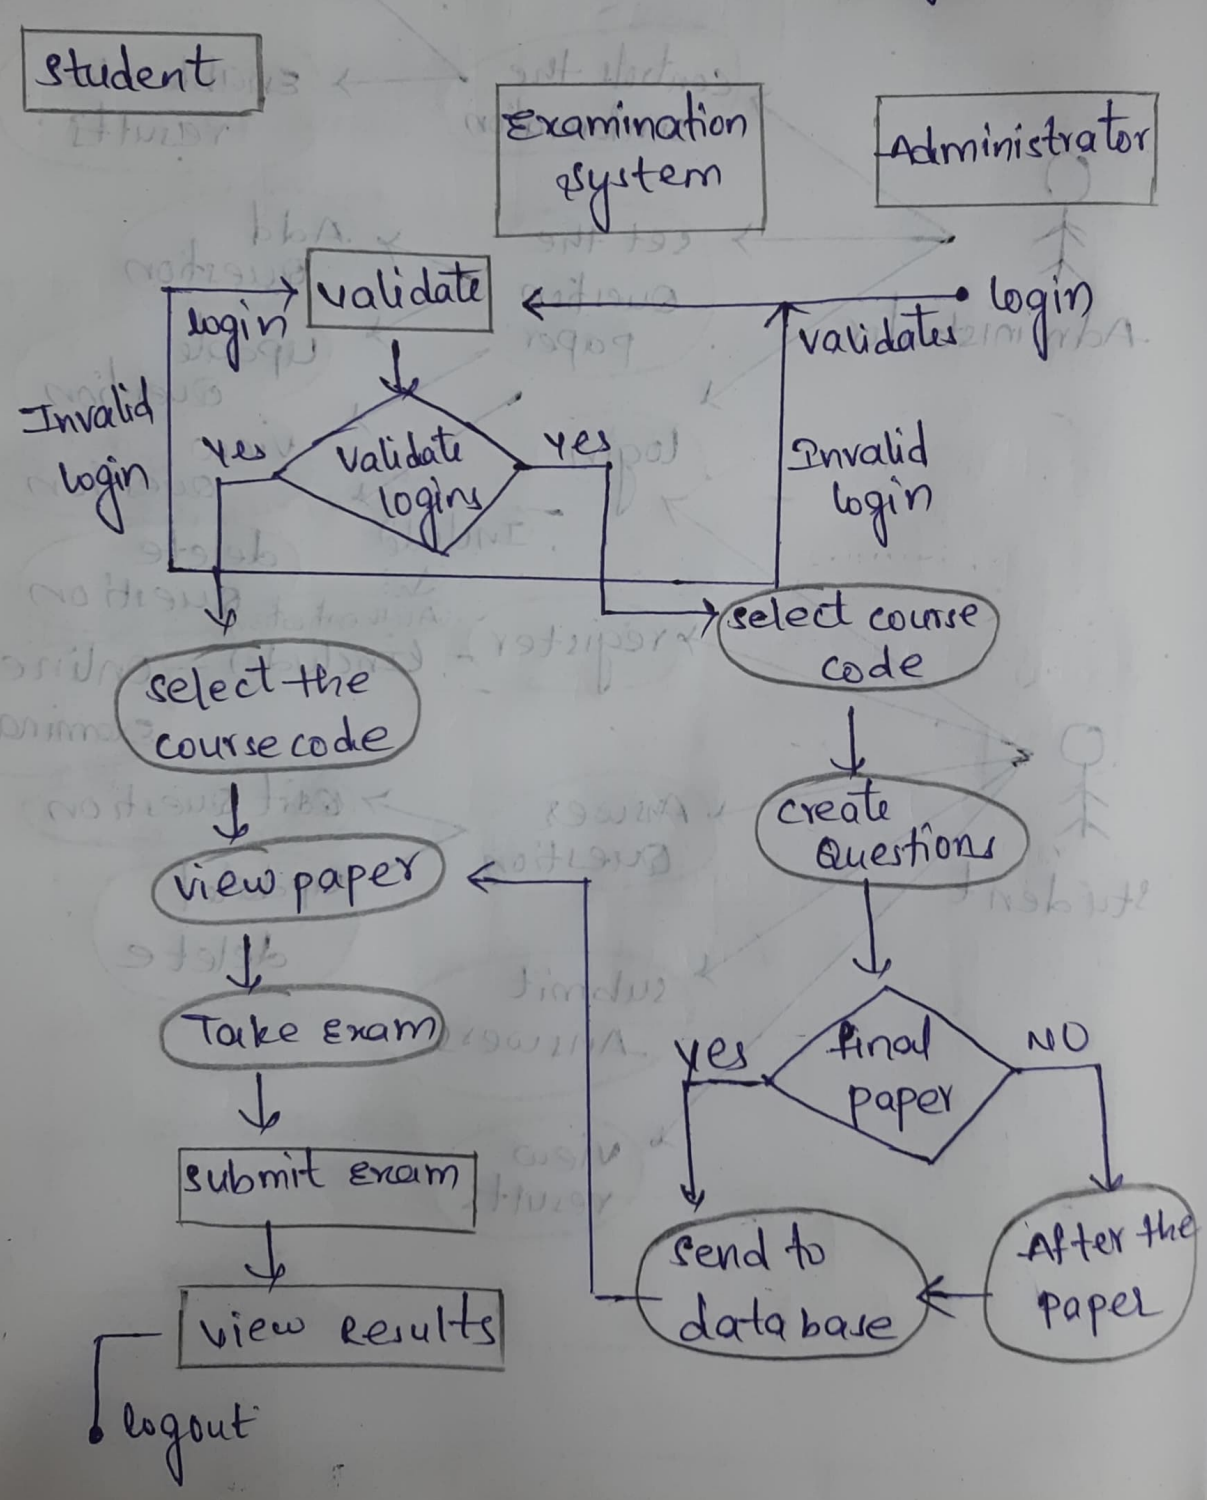 Student
Examination
system
Administrator
validate
login
login
validates
Invalid
login
yes
validate
logins
yes
Invalid
login
select course
code
select the
course code
create
Questions
view paper
Take Exam
final
paper
yes
NO
submit Exam
Send to
database
After the
paper
view Results
logout